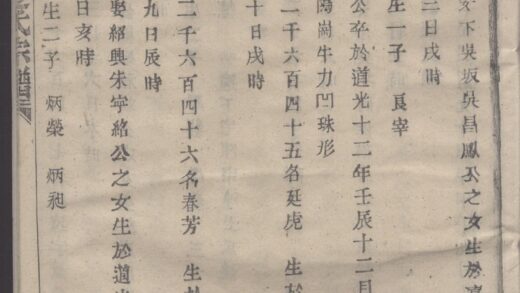 下吳坂吳昌鳳公之女生於道
三日戌時
生一子 良宰
公卒於道光十二年壬辰十二月
崗牛力凹珠形
千六百四十五名延虎 生於
十日戌時
二千六百四十六名春芳 生
九日辰時
娶紹興朱宇紹公之女生於道
日亥時
生二子 炳榮 炳昶
氏宗譜